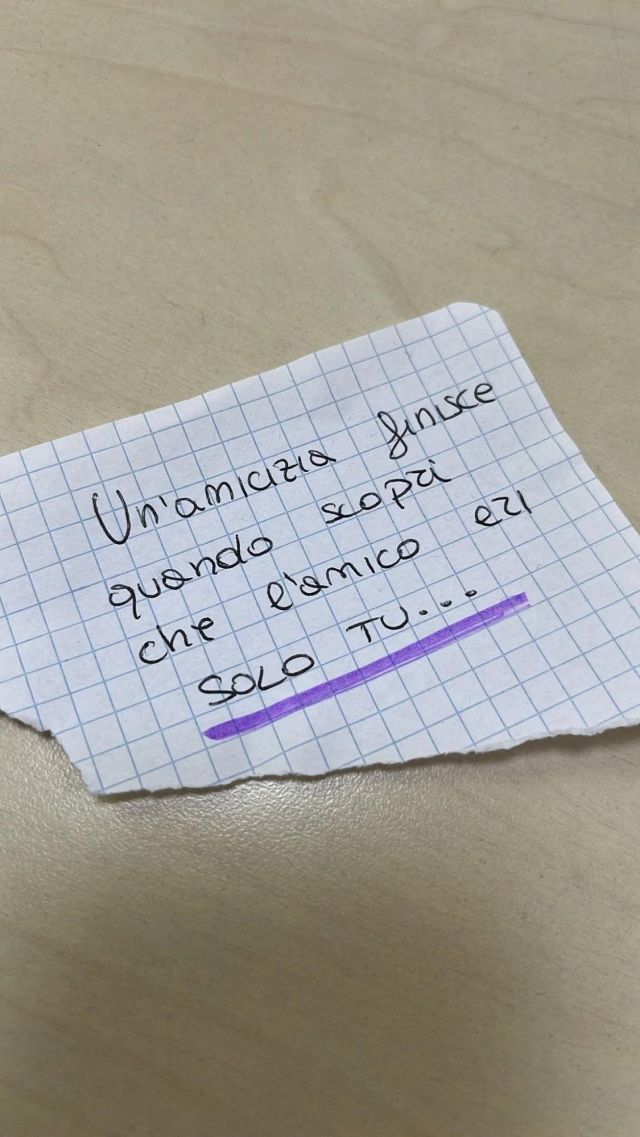 Un'amicizia finisce
quando scopri
che l'amico eri
SOLO TU...